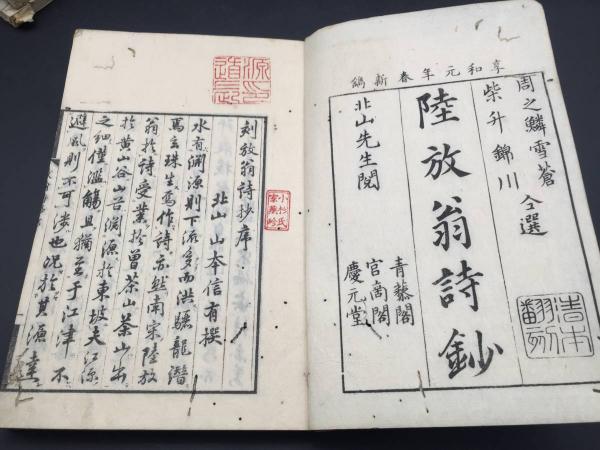 享和元年春新鐫
周之鱗雪蒼
柴升錦川
仝選
陸放翁詩鈔
北山先生閱
青藜閣
宮商閣
慶元堂
清本
翻刻
刻放翁詩抄序
北山山本信有撰
水有淵源則下流多而洪驪龍潛
焉玄珠生焉作詩亦然南宋陸放
翁於詩受業於曾茶山茶山出
於黃山谷山谷淵源於東坡夫江源
之細僅濫觴且猶至于江津不
避風則不可涉也況於其源遠
小杉氏
家藏吟